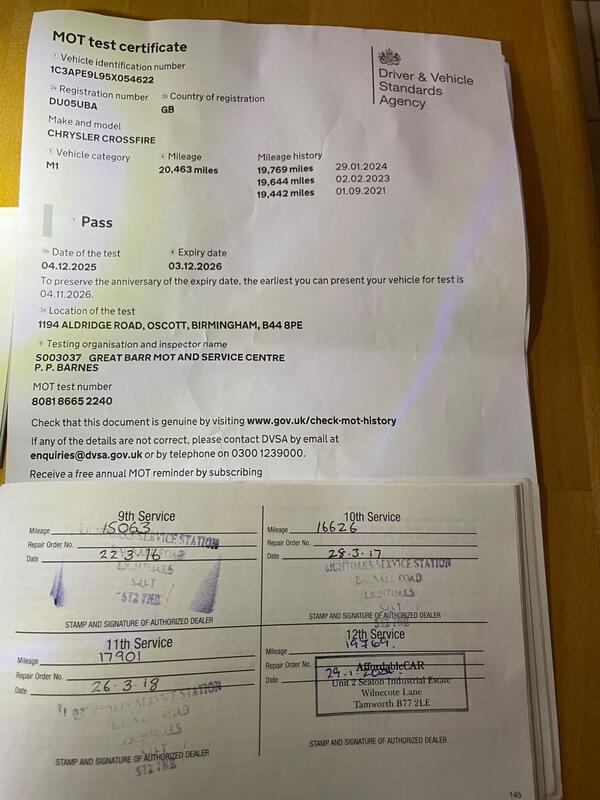 MOT test certificate
Vehicle identification number
1C3APE9L95X054622
Registration number
Country of registration
DU05UBA
GB
Make and model
CHRYSLER CROSSFIRE
Vehicle category
Mileage
Mileage history
M1
20,463 miles
19,769 miles 29.01.2024
19,644 miles 02.02.2023
19,442 miles 01.09.2021
Driver & Vehicle
Standards
Agency
Pass
Date of the test
Expiry date
04.12.2025
03.12.2026
To preserve the anniversary of the expiry date, the earliest you can present your vehicle for test is
04.11.2026.
Location of the test
1194 ALDRIDGE ROAD, OSCOTT, BIRMINGHAM, B44 8PE
Testing organisation and inspector name
S003037 GREAT BARR MOT AND SERVICE CENTRE
P. P. BARNES
MOT test number
8081 8665 2240
Check that this document is genuine by visiting www.gov.uk/check-mot-history
If any of the details are not correct, please contact DVSA by email at
enquiries@dvsa.gov.uk or by telephone on 0300 1239000.
Receive a free annual MOT reminder by subscribing
9th Service
Mileage 15063
Repair Order No.
SERVICE STATION
Date 22.3.16
ROAD
ST2 7NB
STAMP AND SIGNATURE OF AUTHORIZED DEALER
10th Service
Mileage 16626
Repair Order No.
Date 28.3.17
SERVICE STATION
ROAD
STAMP AND SIGNATURE OF AUTHORIZED DEALER
11th Service
Mileage 17901
Repair Order No.
Date 26.3.18
STATION
STAMP AND SIGNATURE OF AUTHORIZED DEALER
12th Service
Mileage 19769.
Repair Order No.
Date
AffordableCAR
Unit 2 Seaton Industrial Estate
Wilnecote Lane
Tamworth B77 2LE
STAMP AND SIGNATURE OF AUTHORIZED DEALER
145